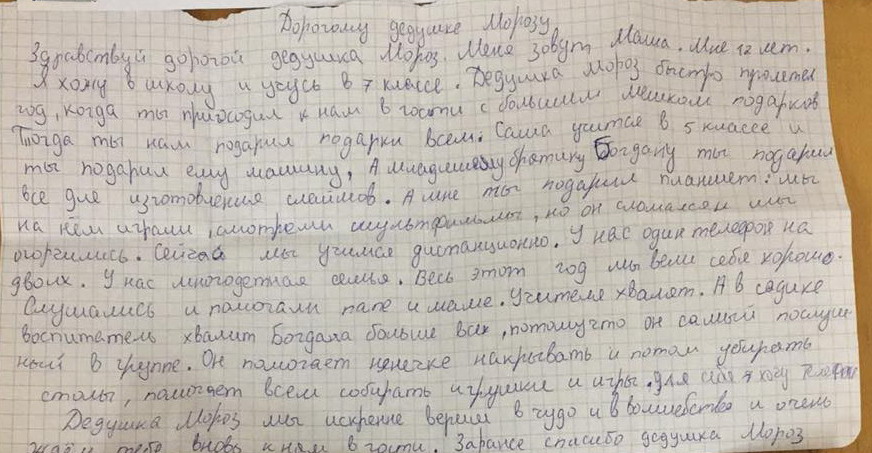 Дорогому дедушке Морозу
Здравствуй дорогой дедушка Мороз. Меня зовут Маша. Мне 12 лет.
Я хожу в школу и учусь в 7 классе. Дедушка Мороз быстро пролетел
год, когда ты приходил к нам в гости с большим мешком подарков
Тогда ты нам подарил подарки всем. Саша учится в 5 классе и
ты подарил ему машину, А младшему братику Богдану ты подарил
все для изготовления слаймов. А мне ты подарил планшет: мы
на нём играли, смотрели мультфильмы, но он сломался и мы
огорчились. Сейчас мы учимся дистанционно. У нас один телефон на
двоих. У нас многодетная семья. Весь этот год мы вели себя хорошо.
Слушались и помогали папе и маме. Учителя хвалят. А в садике
воспитатель хвалит Богдана больше всех, потому что он самый послуш-
ный в группе. Он помогает нянечке накрывать и потом убирать
столы, помогает всем собирать игрушки и игры. Для себя я хочу телефон
Дедушка Мороз мы искренне верим в чудо и в волшебство и очень
ждём тебя вновь к нам в гости. Заранее спасибо дедушка Мороз